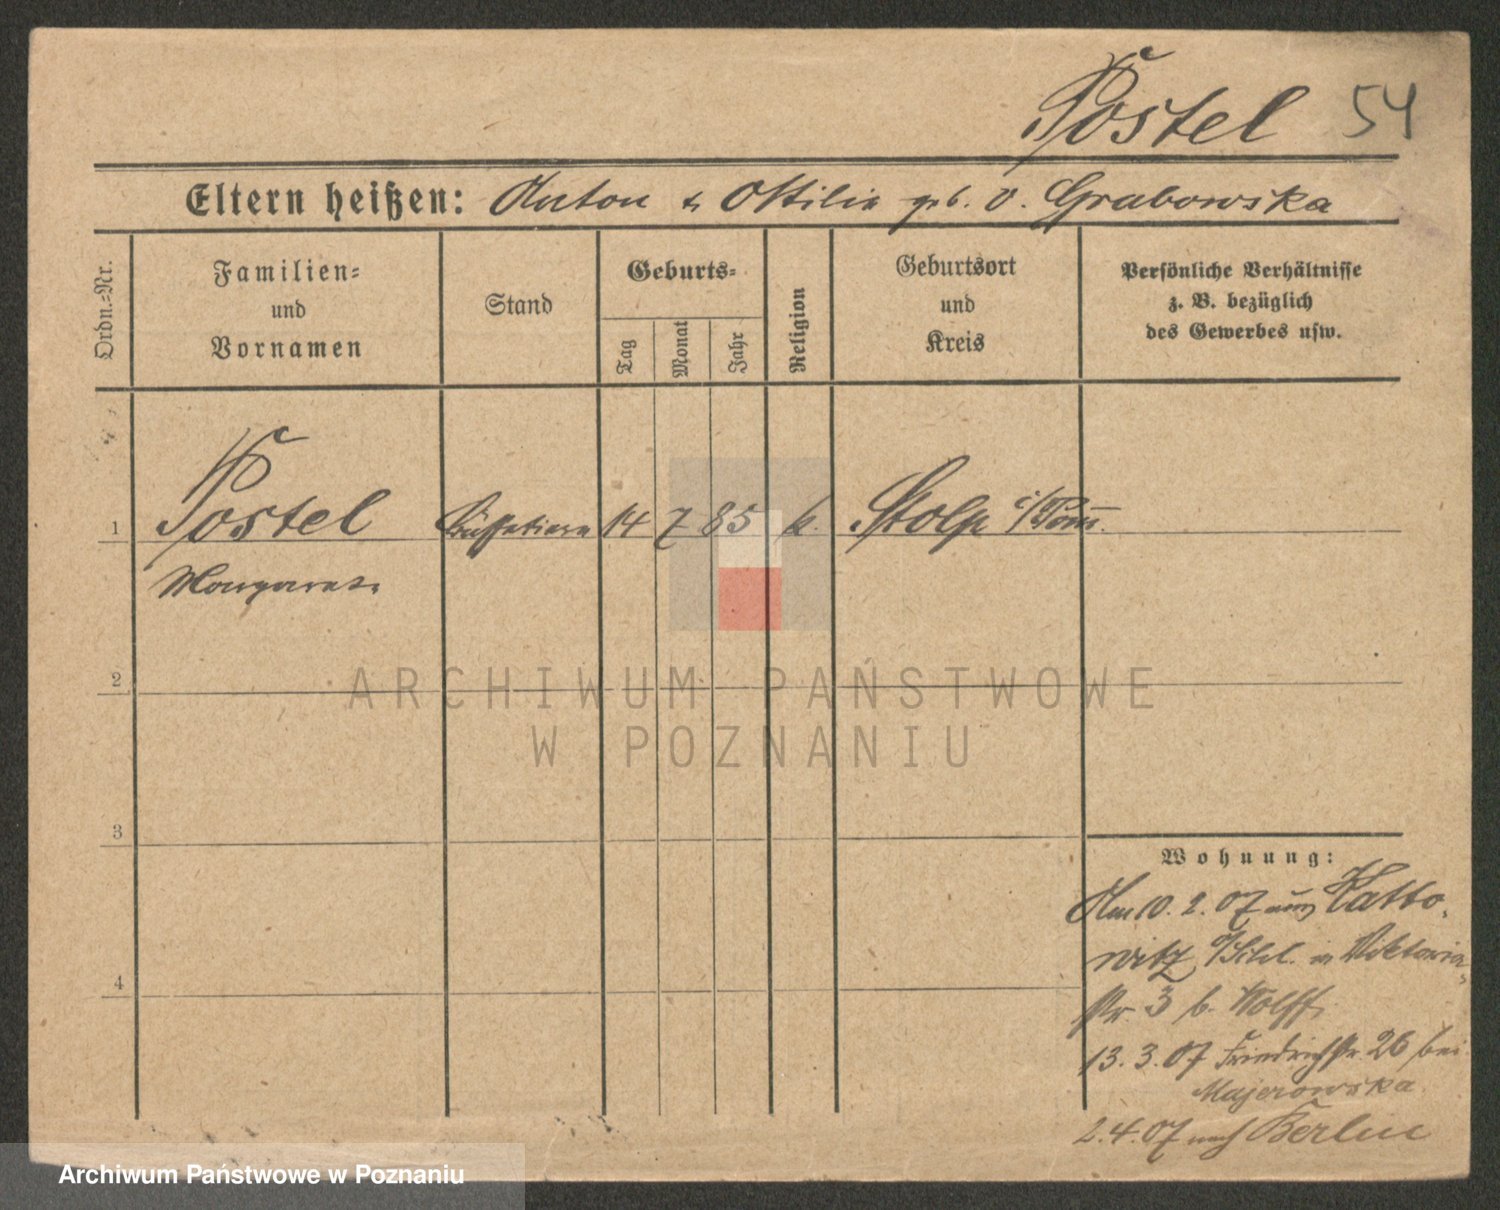 Postel 54
Eltern heißen: Anton & Ottilie geb. v. Grabowska
Ordn.=Nr.
Familien=
und
Vornamen
Stand
Geburts=
Tag
Monat
Jahr
Religion
Geburtsort
und
Kreis
Persönliche Verhältnisse
z. B. bezüglich
des Gewerbes usw.
1 Postel Büffetiere 14 7 85 k. Stolp i/Pom.
Margarete
2
3
4
ARCHIWUM PAŃSTWOWE
W POZNANIU
Wohnung:
Am 10. 2. 07 aus Katto-
witz /Schl. n Viktoria-
str. 3 b. Wolff.
13. 3. 07 Friedrichstr. 26 bei
Majerowska
2. 4. 07 nach Berlin
Archiwum Państwowe w Poznaniu